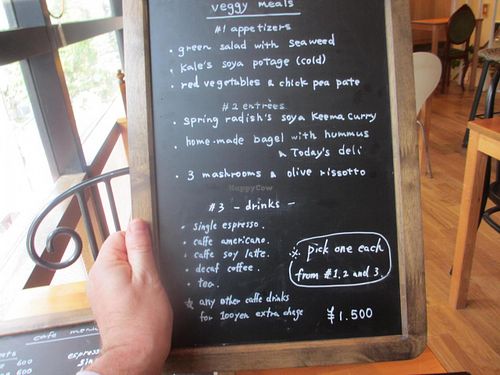 veggy meals
#1 appetizers
• green salad with seaweed
• Kale's soya potage (cold)
• red vegetables & chick pea pate
#2 entrèes
• spring radish's soya keema curry
• home-made bagel with hummus
& Today's deli
• 3 mashrooms & olive rissotto
HappyCow
#3 - drinks -
• single espresso.
• caffe americano.
• caffe soy latte.
• decaf coffee.
• tea.
☆ any other caffe drinks
for 100yen extra chage
※ pick one each
from #1, 2 and 3.
¥1.500
cafe menu
espresso
600
600